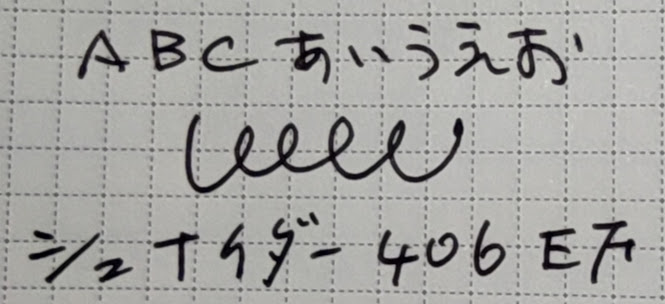 ABC あいうえお
シュナイダー 406 EF